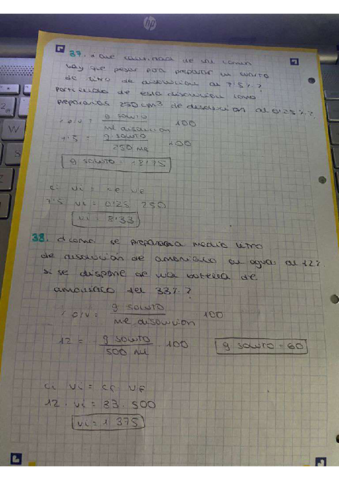 hp
37.
hay que pesar para preparar un
de litro de disolución al 7'5%?
partiendo de esta disolución como
prepararías 250 cm3 de disolución al 0'25%?
% P/V = g soluto / ml disolución · 100
7'5 = g soluto / 250 ml · 100
g soluto = 18'75
Ci · Vi = CF · VF
7'5 · Vi = 0'25 · 250
Vi = 8'33
38. ¿Cómo se prepararía medio litro
de disolución de amoniaco en agua al 12%
si se dispone de una botella de
amoniaco del 33%?
% P/V = g soluto / ml disolución · 100
12 = g soluto / 500 ml · 100
g soluto = 60
Ci · Vi = CF · VF
12 · Vi = 33 · 500
Vi = 1375